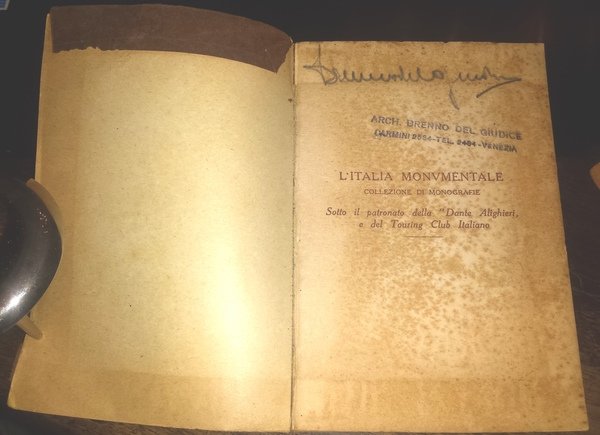 Brenno del Giudice
ARCH. BRENNO DEL GIUDICE
CARMINI 2554-TEL. 2484-VENEZIA
L'ITALIA MONVMENTALE
COLLEZIONE DI MONOGRAFIE
Sotto il patronato della "Dante Alighieri,
e del Touring Club Italiano